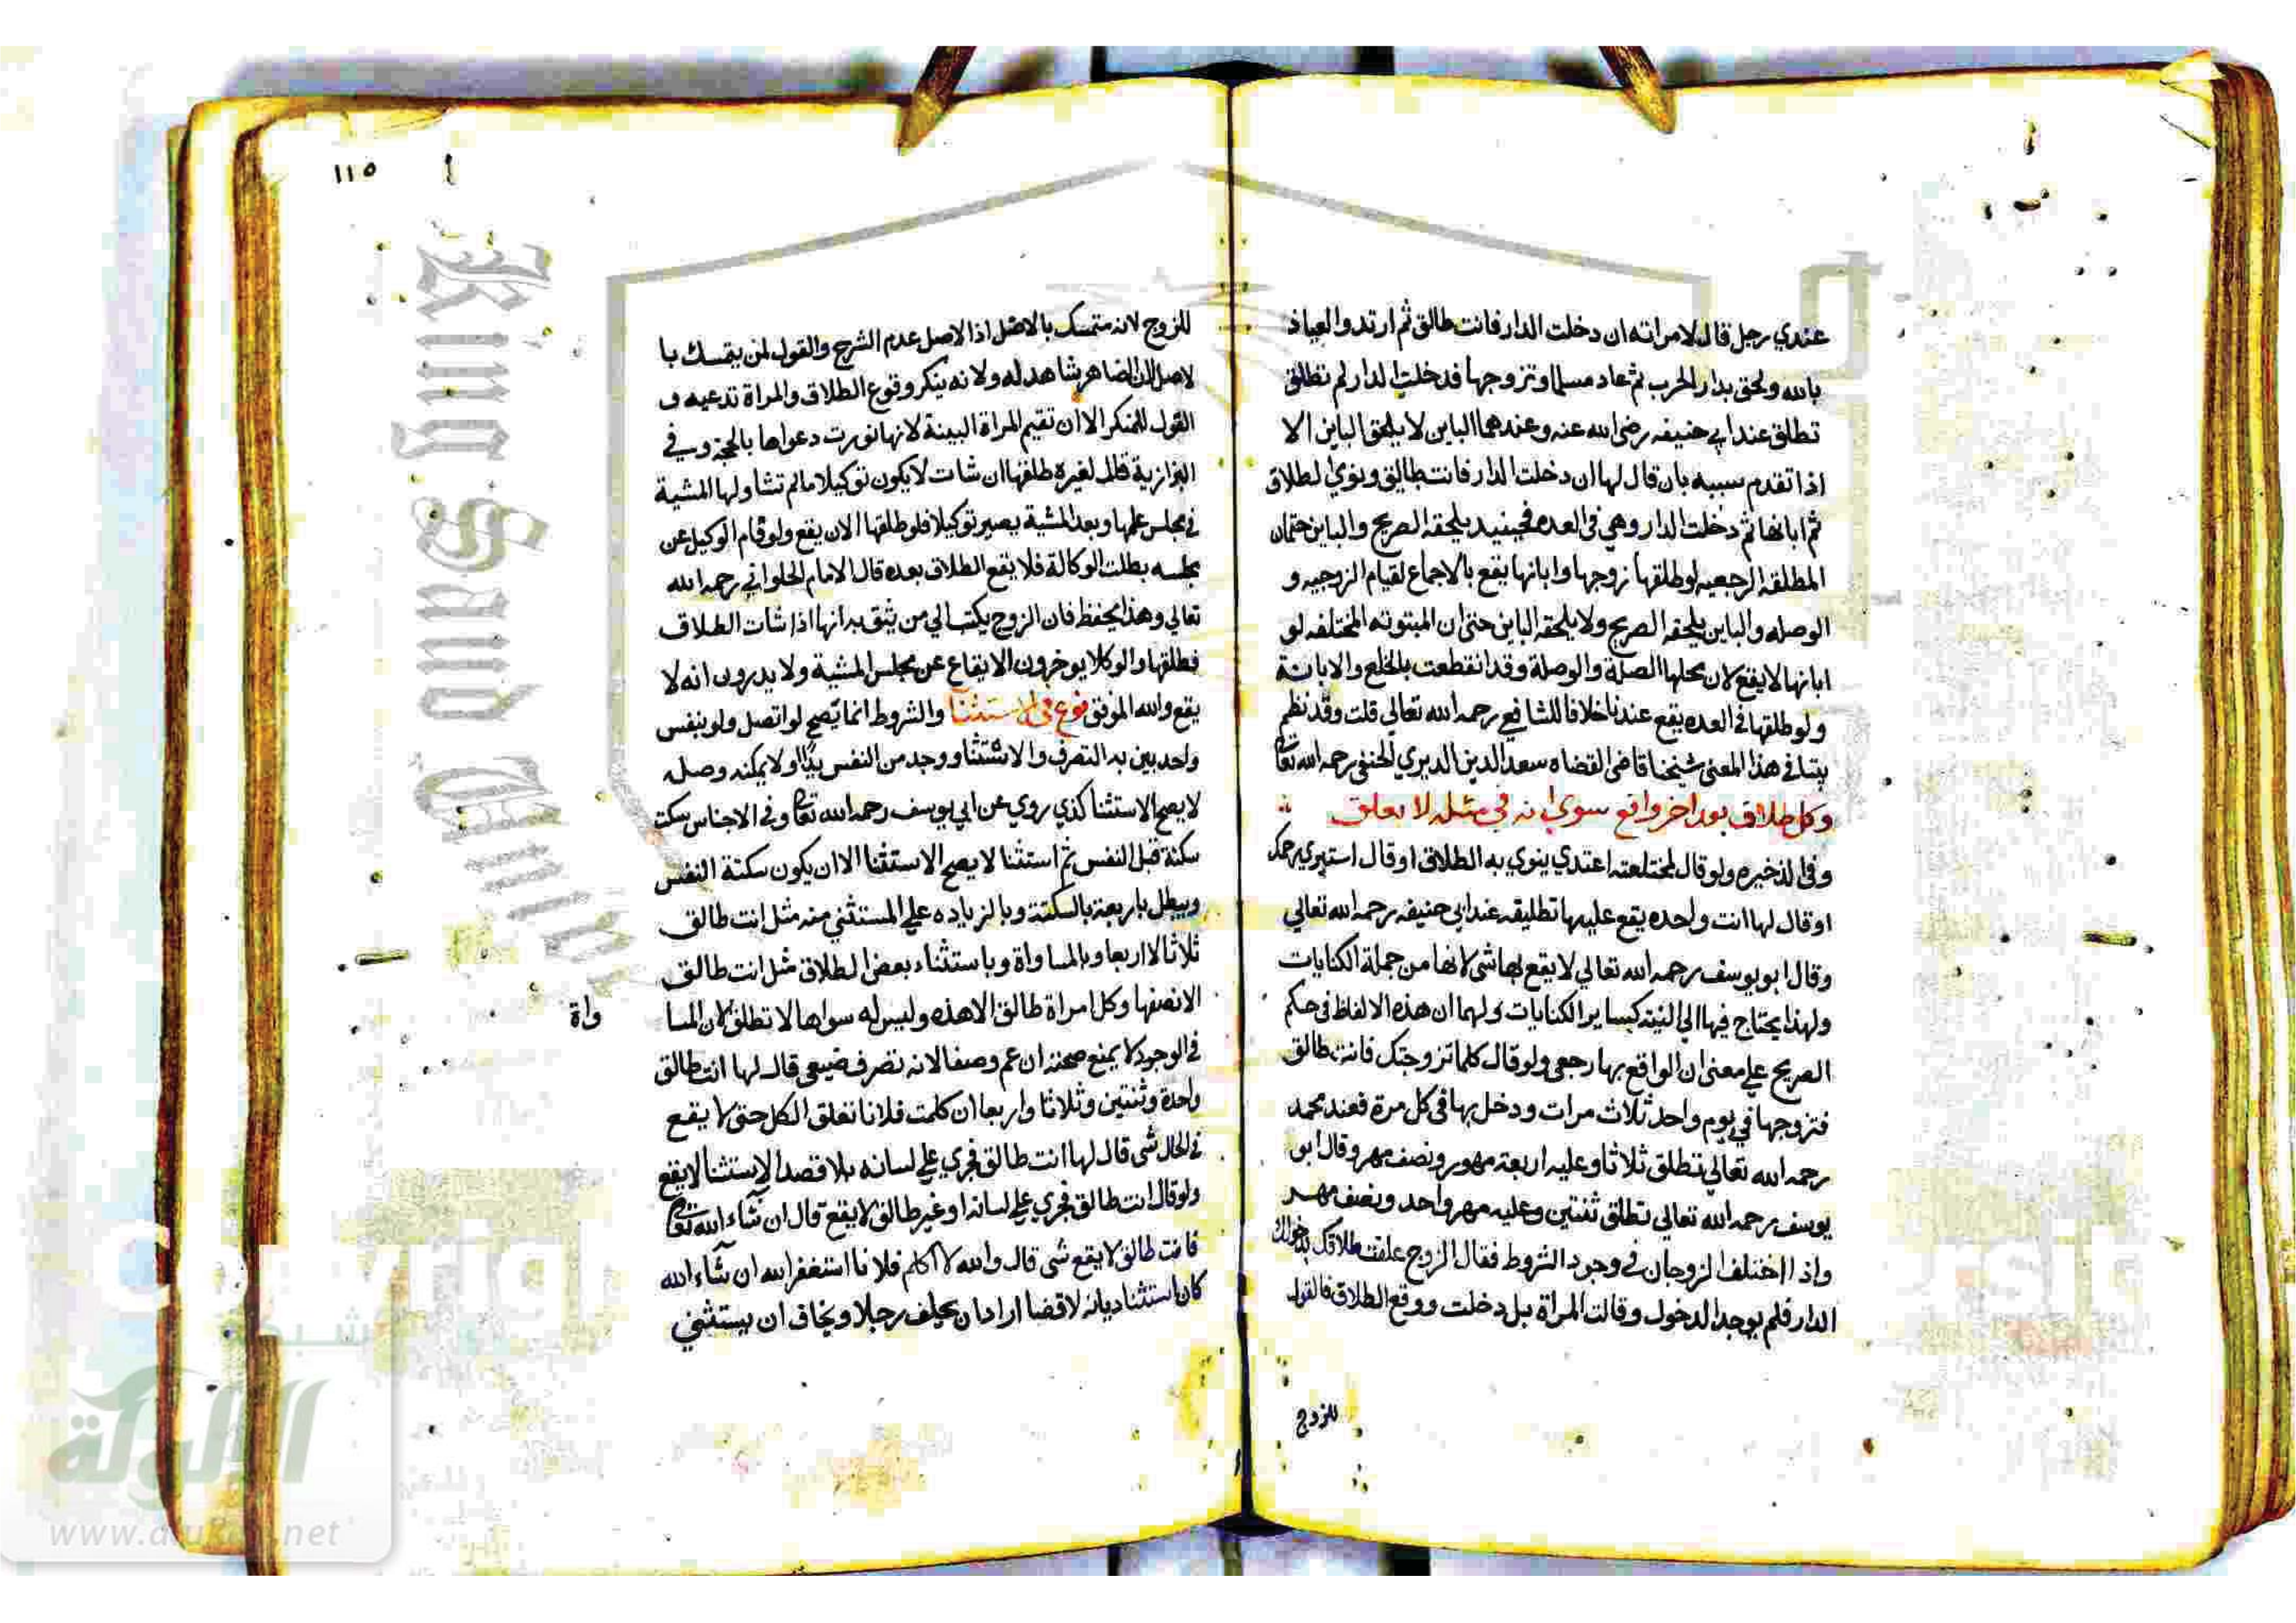 عندي رجل قال لامراته ان دخلت الدار فانت طالق ثم ارتد والعياذ
بالله ولحق بدار الحرب ثم عاد مسلما وتزوجها فدخلت الدار لم تطلق
تطلق عند ابي حنيفه رضي الله عنه وعندهما الباين لا يلحق الباين الا
اذا تقدم سببه بان قال لها ان دخلت الدار فانت طالق ونوي الطلاق
ثم ابانها ثم دخلت الدار وهي في العده فحينيد يلحقه الصريح والباين
المطلقه الرجعيه لو طلقها زوجها وابانها يقع بالاجماع لقيام الزوجيه و
الوصله والباين يلحقه الصريح ولا يلحقه الباين حتي ان المبتوته المختلفه لو
ابانها لا يقع لان محلها الصلة والوصلة وقد انقطعت بالخلع والابانة
ولو طلقها في العده يقع عندنا خلافا للشافعي رحمه الله تعالي قلت وقد نظم
بيتا في هذا المعني شيخنا قاضي القضاه سعد الدين الديري الحنفي رحمه الله تعا
وكل طلاق بعد اخر واقع سوي باين في مثله لا يعلق
وفي الذخيره ولو قال لمختلعته اعتدي ينوي به الطلاق او قال استبري رحمك
او قال لها انت واحده يقع عليها تطليقه عند ابي حنيفه رحمه الله تعالي
وقال ابو يوسف رحمه الله تعالي لا يقع بها شي لانها من جملة الكنايات
ولهذا يحتاج فيها الي النية كساير الكنايات ولهما ان هذه الالفاظ في حكم
الصريح علي معني ان الواقع بها رجعي ولو قال كلما تزوجتك فانت طالق
فتزوجها في يوم واحد ثلاث مرات ودخل بها في كل مرة فعند محمد
رحمه الله تعالي تطلق ثلاثا وعليه اربعة مهور ونصف مهر وقال ابو
يوسف رحمه الله تعالي تطلق ثنتين وعليه مهر واحد ونصف مهر
واذا اختلف الزوجان في وجود الشروط فقال الزوج علقت طلاقك بدخولك
الدار فلم يوجد الدخول وقالت المراة بل دخلت ووقع الطلاق فالقول
للزوج
١١٥
للزوج لانه متمسك بالاصل اذ الاصل عدم الشرح والقول لمن يتمسك با
لاصل لان الضاهر شاهد له ولانه ينكر وقوع الطلاق والمراة تدعيه و
القول للمنكر الا ان تقيم المراة البينة لانها نورت دعواها بالحجة وفي
البزازية قال لغيره طلقها ان شات لا يكون توكيلا ما لم تشا ولها المشية
في مجلس علمها وبعد المشية يصير توكيلا فلو طلقها الان يقع ولو قام الوكيل عن
مجلسه بطلت الوكالة فلا يقع الطلاق بعده قال الامام الحلواني رحمه الله
تعالي وهذا يحفظ فان الزوج يكتب الي من يثق به انها اذا شات الطلاق
فطلقها والوكلا يوخرون الايقاع عن مجلس المشية ولا يدرون انه لا
يقع والله الموفق نوع في الاستثنا والشروط انما يصح لو اتصل ولو بنفس
واحد بين به التصرف والاستثنا ووجد من النفس بدا ولا يمكنه وصله
لا يصح الاستثنا كذي روي عن ابي يوسف رحمه الله تعا وفي الاجناس سكت
سكتة قبل النفس ثم استثنا لا يصح الاستثنا الا ان يكون سكتة النفس
ويبطل باربعة بالسكتة وبالزياده علي المستثني منه مثل انت طالق
ثلاثا الا اربعا وبالمساواة وباستثناء بعض الطلاق مثل انت طالق
الا نصفها وكل امراة طالق الا هذه وليس له سواها لا تطلق لان المسا
واة
في الوجود لا يمنع صحته ان عم وصفا لانه تصرف ضيعي قال لها انت طالق
واحدة وثنتين وثلاثا واربعا ان كلمت فلانا تعلق الكل حتي لا يقع
في الحال شي قال لها انت طالق فجري علي لسانه بلا قصد الاستثنا لا يقع
ولو قال انت طالق فجري علي لسانه او غير طالق لا يقع قال ان شاء الله تعا
فانت طالق لا يقع شي قال والله لا اكلم فلانا استغفر الله ان شاء الله
كان استثنا ديانه لا قضا اراد ان يحلف رجلا ويخاف ان يستثني
King Saud University
شبكة
الألوكة
www.alukah.net